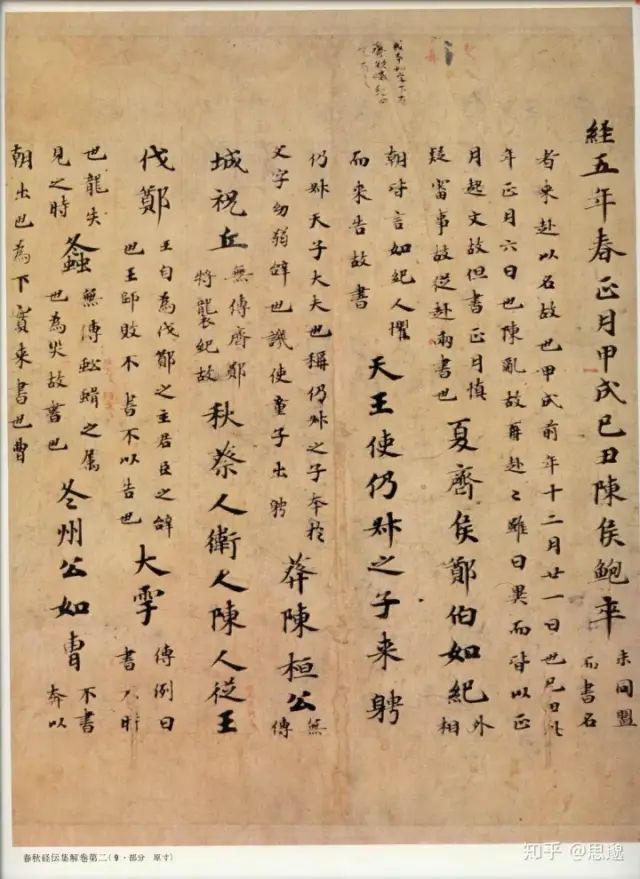 経五年春正月甲戌己丑陳侯鮑卒
未同盟
而書名
者来赴以名故也甲戌前年十二月廿一日也己丑此
年正月六日也陳亂故再赴〻雖日異而皆以正
月起文故但書正月慎
疑審事故従赴兩書也
夏齊侯鄭伯如紀
外
相
朝皆言如紀人懼
而来告故書
天王使仍叔之子来聘
仍叔天子大夫也稱仍叔之子本於
父字幼弱辞也譏使童子出聘
葬陳桓公
無
傳
城祝丘
無傳齊鄭
将襲紀故
秋蔡人衛人陳人従王
伐鄭
王自為伐鄭之主君臣之辞
也王師敗不書不以告也
大雩
傳例曰
書不時
也龍失
見之時
螽
無傳蚣蝑之属
也為灾故書也
冬州公如曹
不書
奔以
朝出也為下實来書也曹
春秋経伝集解巻第二(9・部分 原寸)
知乎 @思邈